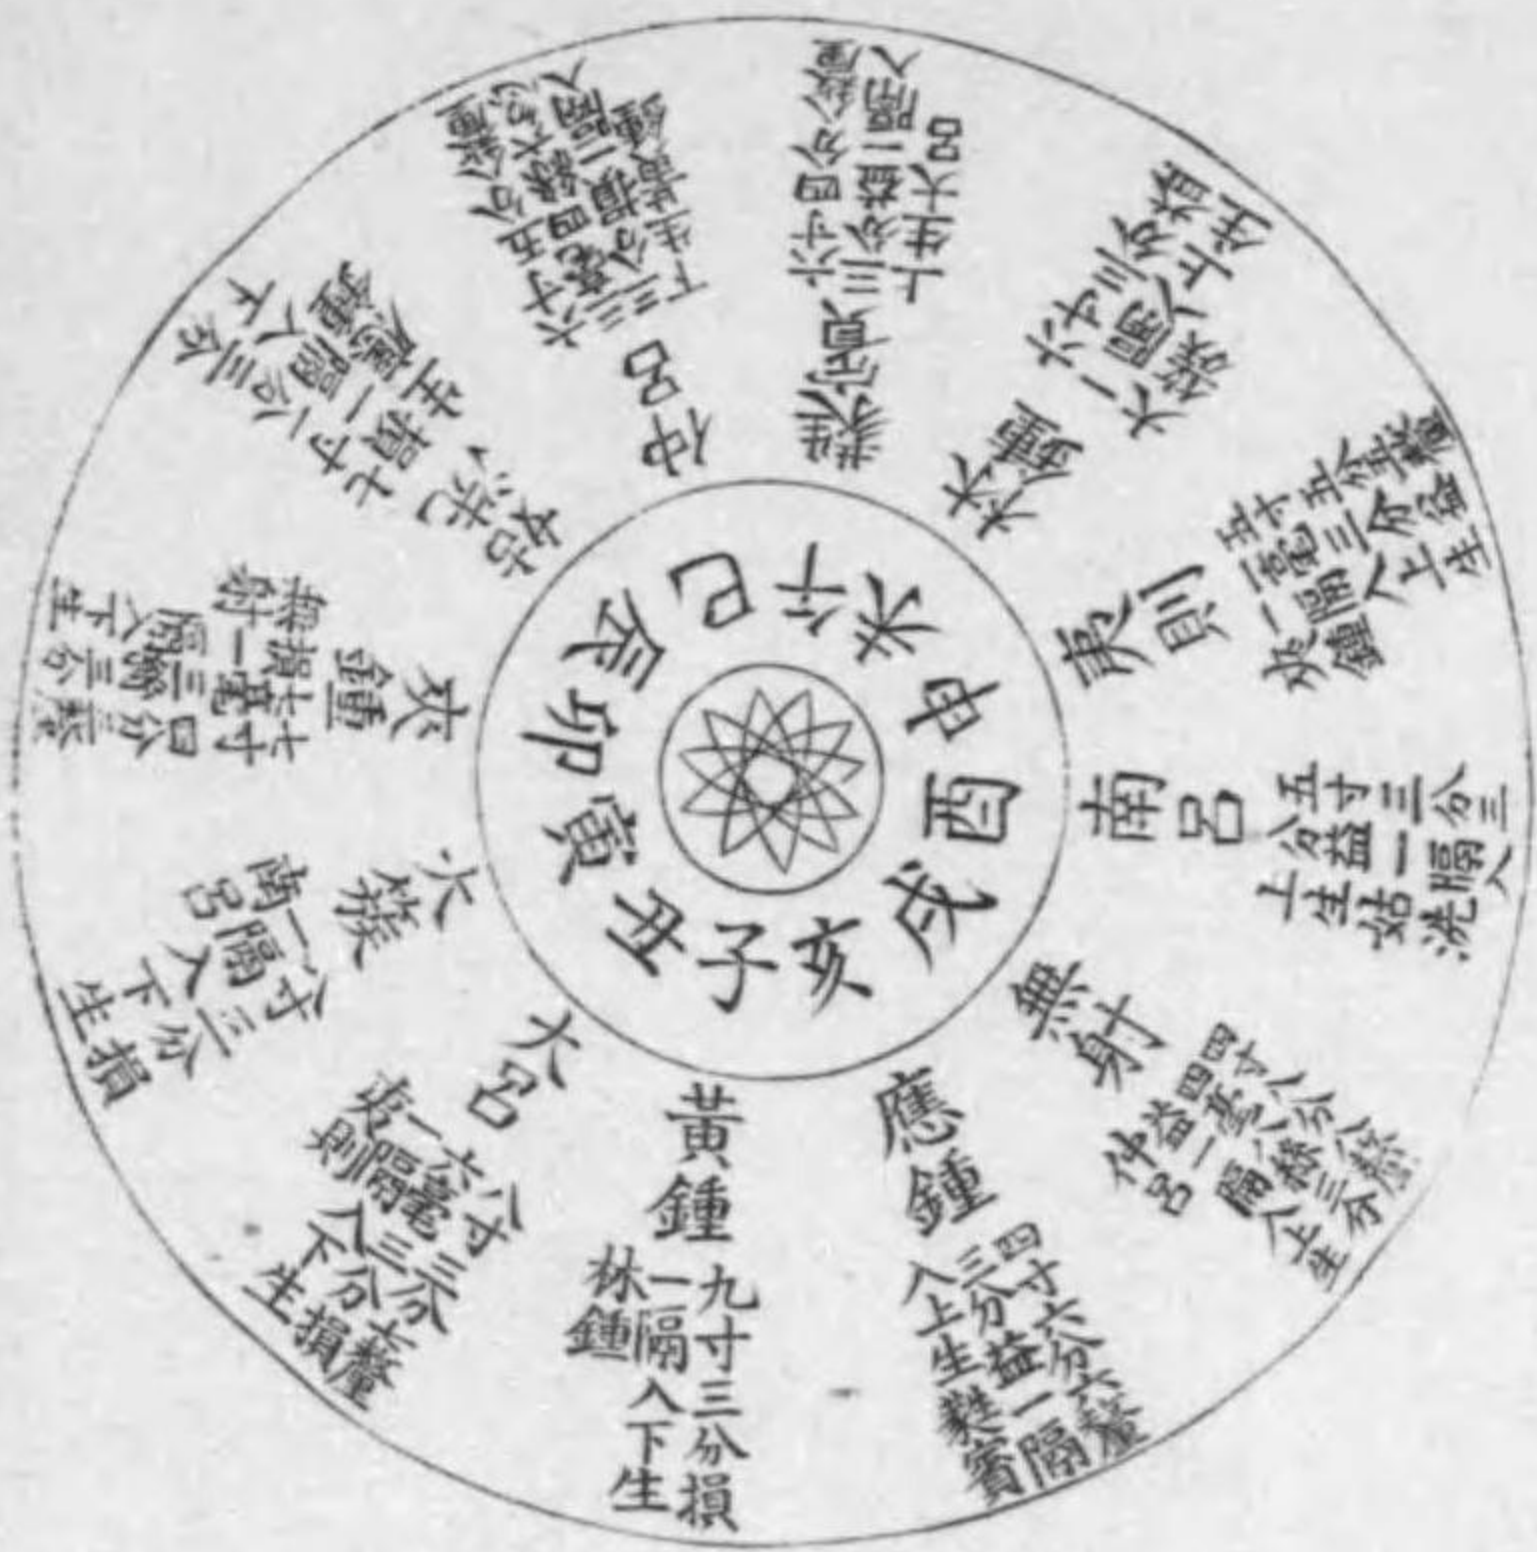 黃鍾
九寸三分損
一隔八下生
林鍾
大呂
八寸三分七釐
六毫三分損
一隔八下生
夷則
大簇
八寸三分損
一隔八下生
南呂
夾鍾
七寸
七毫三分損
一隔八下生
無射
姑洗
七寸一分三分
損一隔八下
生應鍾
仲呂
六寸五分八釐
三毫四絲六忽
三分損一隔八
下生黃鍾
蕤賓
六寸四分八釐
三分益一隔八
上生大呂
林鍾
六寸三分益
一隔八上生
大簇
夷則
五寸五分五釐
一毫三分益
一隔八上生
夾鍾
南呂
五寸三分三
分益一隔八
上生姑洗
無射
四寸八分八釐
四毫八絲三分
益一隔八上生
仲呂
應鍾
四寸六分六釐
三分益一隔
八上生蕤賓
子
丑
寅
卯
辰
巳
午
未
申
酉
戌
亥